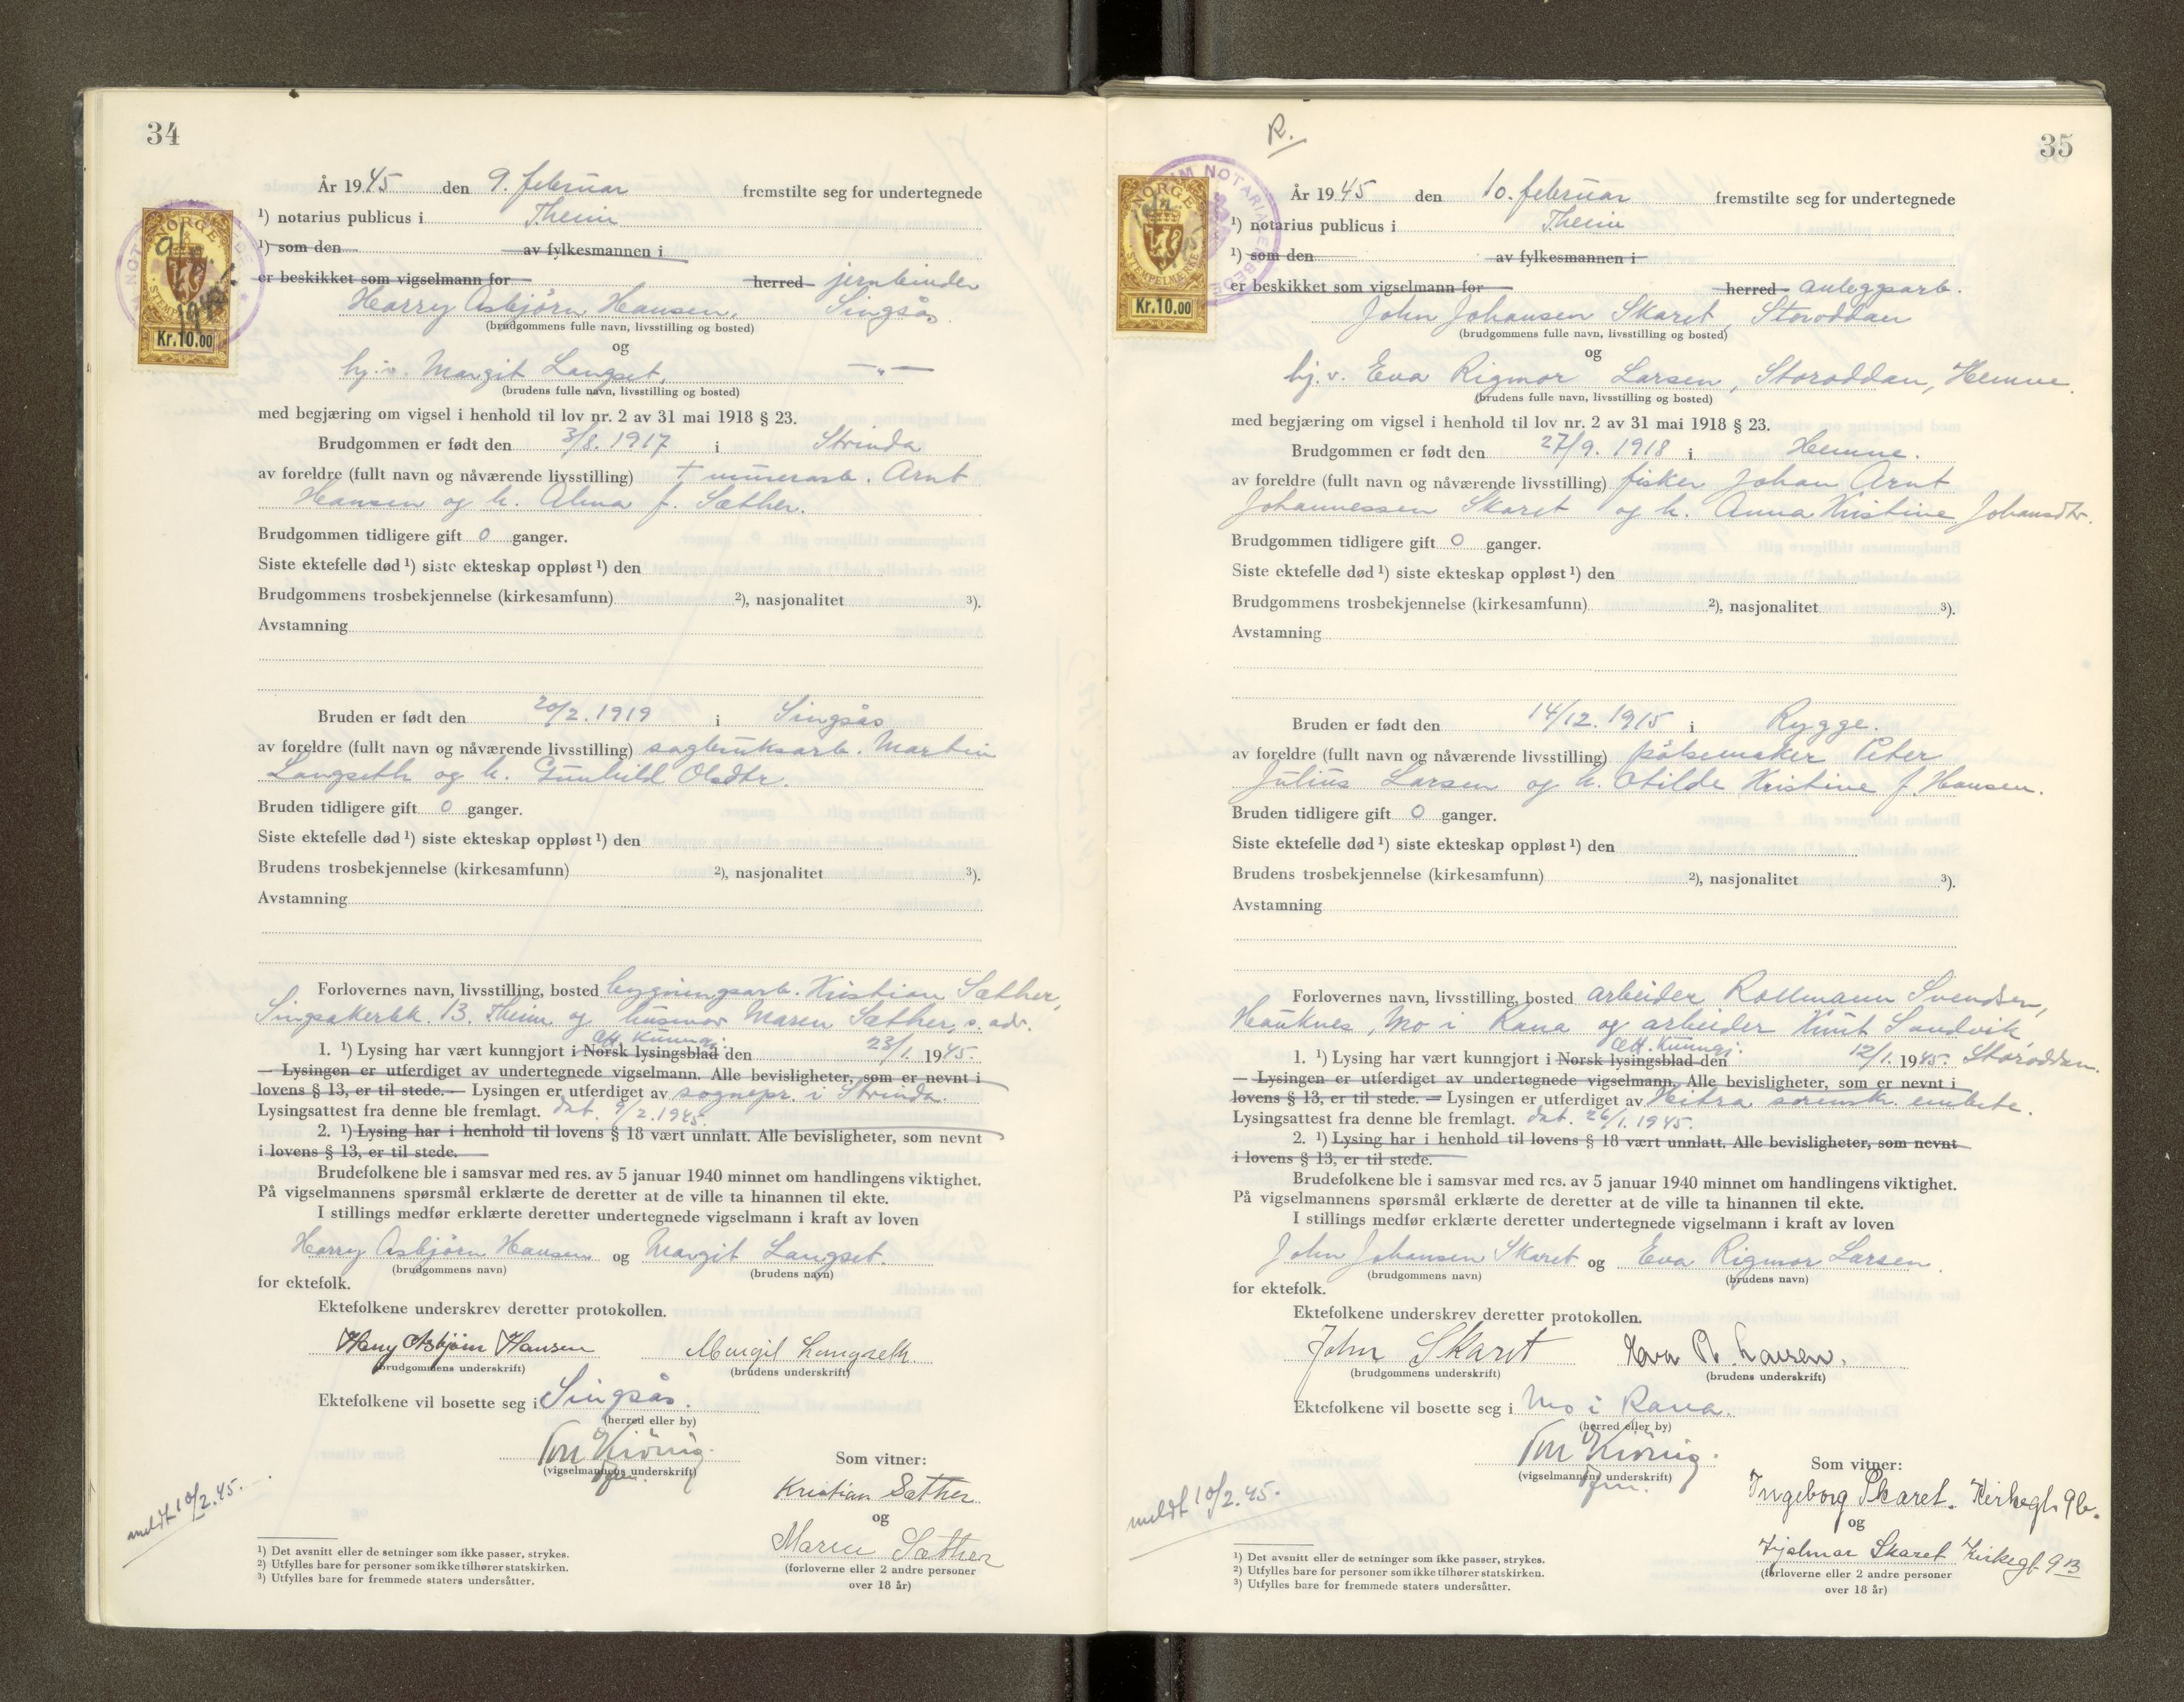 34
År 1945 den 9. februar fremstilte seg for undertegnede
¹) notarius publicus i Themi
¹) som den av fylkesmannen i
er beskikket som vigselmann for herred jernbinder
Harry Asbjørn Hansen, Singsås
(brudgommens fulle navn, livsstilling og bosted)
og
hj.v. Margit Langset, —"—
(brudens fulle navn, livsstilling og bosted)
med begjæring om vigsel i henhold til lov nr. 2 av 31 mai 1918 § 23.
Brudgommen er født den 3/8. 1917 i Strinda
av foreldre (fullt navn og nåværende livsstilling) † murerarb. Arnt
Hansen og h. Alma f. Sæther.
Brudgommen tidligere gift 0 ganger.
Siste ektefelle død ¹) siste ekteskap oppløst ¹) den
Brudgommens trosbekjennelse (kirkesamfunn) ²), nasjonalitet ³).
Avstamning
Bruden er født den 20/2. 1919 i Singsås
av foreldre (fullt navn og nåværende livsstilling) sagbruksarb. Martin
Langseth og h. Gunhild Olsdtr.
Bruden tidligere gift 0 ganger.
Siste ektefelle død ¹) siste ekteskap oppløst ¹) den
Brudens trosbekjennelse (kirkesamfunn) ²), nasjonalitet ³).
Avstamning
Forlovernes navn, livsstilling, bosted bygningsarb. Kristian Sæther,
Singsakerbk. 13. Theim og husmor Maren Sæther, s. adr.
Off. Kunngj:
1. ¹) Lysing har vært kunngjort i Norsk lysingsblad den 23/1. 1945.
— Lysingen er utferdiget av undertegnede vigselmann. Alle bevisligheter, som er nevnt i
lovens § 13, er til stede. — Lysingen er utferdiget av sognepr. i Strinda.
Lysingsattest fra denne ble fremlagt. dat. 9/2. 1945.
2. ¹) Lysing har i henhold til lovens § 18 vært unnlatt. Alle bevisligheter, som nevnt
i lovens § 13, er til stede.
Brudefolkene ble i samsvar med res. av 5 januar 1940 minnet om handlingens viktighet.
På vigselmannens spørsmål erklærte de deretter at de ville ta hinannen til ekte.
I stillings medfør erklærte deretter undertegnede vigselmann i kraft av loven
Harry Asbjørn Hansen og Margit Langset.
(brudgommens navn) (brudens navn)
for ektefolk.
Ektefolkene underskrev deretter protokollen.
Harry Asbjørn Hansen Margit Langseth.
(brudgommens underskrift) (brudens underskrift)
Ektefolkene vil bosette seg i Singsås.
(herred eller by)
(vigselmannens underskrift)
Som vitner:
Kristian Sæther
og
Maren Sæther
(forloverne eller 2 andre personer
over 18 år)
meldt 10/2. 45.
¹) Det avsnitt eller de setninger som ikke passer, strykes.
²) Utfylles bare for personer som ikke tilhører statskirken.
³) Utfylles bare for fremmede staters undersåtter.
NORGE
STEMPELMERKE
Kr.10.00
R.
35
År 1945 den 10. februar fremstilte seg for undertegnede
¹) notarius publicus i Themi
¹) som den av fylkesmannen i
er beskikket som vigselmann for herred anleggsarb.
John Johansen Skaret, Storoddan
(brudgommens fulle navn, livsstilling og bosted)
og
hj. v. Eva Rigmor Larsen, Storoddan, Hemne.
(brudens fulle navn, livsstilling og bosted)
med begjæring om vigsel i henhold til lov nr. 2 av 31 mai 1918 § 23.
Brudgommen er født den 27/9. 1918 i Hemne.
av foreldre (fullt navn og nåværende livsstilling) fisker Johan Arnt
Johannessen Skaret og h. Anna Kristine Johansdtr.
Brudgommen tidligere gift 0 ganger.
Siste ektefelle død ¹) siste ekteskap oppløst ¹) den
Brudgommens trosbekjennelse (kirkesamfunn) ²), nasjonalitet ³).
Avstamning
Bruden er født den 14/12. 1915 i Rygge.
av foreldre (fullt navn og nåværende livsstilling) pølsemaker Peter
Julius Larsen og h. Otilde Kristine f. Hansen.
Bruden tidligere gift 0 ganger.
Siste ektefelle død ¹) siste ekteskap oppløst ¹) den
Brudens trosbekjennelse (kirkesamfunn) ²), nasjonalitet ³).
Avstamning
Forlovernes navn, livsstilling, bosted arbeider Rollmann Svendsen,
Hauknes, Mo i Rana og arbeider Knut Sandvik
Off. Kunngj:
1. ¹) Lysing har vært kunngjort i Norsk lysingsblad den 12/1. 1945. Storoddan.
— Lysingen er utferdiget av undertegnede vigselmann. Alle bevisligheter, som er nevnt i
lovens § 13, er til stede. — Lysingen er utferdiget av Hitra sorenskr. embete.
Lysingsattest fra denne ble fremlagt. dat. 26/1. 1945.
2. ¹) Lysing har i henhold til lovens § 18 vært unnlatt. Alle bevisligheter, som nevnt
i lovens § 13, er til stede.
Brudefolkene ble i samsvar med res. av 5 januar 1940 minnet om handlingens viktighet.
På vigselmannens spørsmål erklærte de deretter at de ville ta hinannen til ekte.
I stillings medfør erklærte deretter undertegnede vigselmann i kraft av loven
John Johansen Skaret og Eva Rigmor Larsen.
(brudgommens navn) (brudens navn)
for ektefolk.
Ektefolkene underskrev deretter protokollen.
John Skaret Eva R. Larsen.
(brudgommens underskrift) (brudens underskrift)
Ektefolkene vil bosette seg i Mo i Rana.
(herred eller by)
(vigselmannens underskrift)
Som vitner:
Ingeborg Skaret. Kirkegt. 9b.
og
Hjalmar Skaret Kirkegt 9B
(forloverne eller 2 andre personer
over 18 år)
meldt 10/2. 45.
¹) Det avsnitt eller de setninger som ikke passer, strykes.
²) Utfylles bare for personer som ikke tilhører statskirken.
³) Utfylles bare for fremmede staters undersåtter.
NORGE
STEMPELMERKE
Kr.10.00